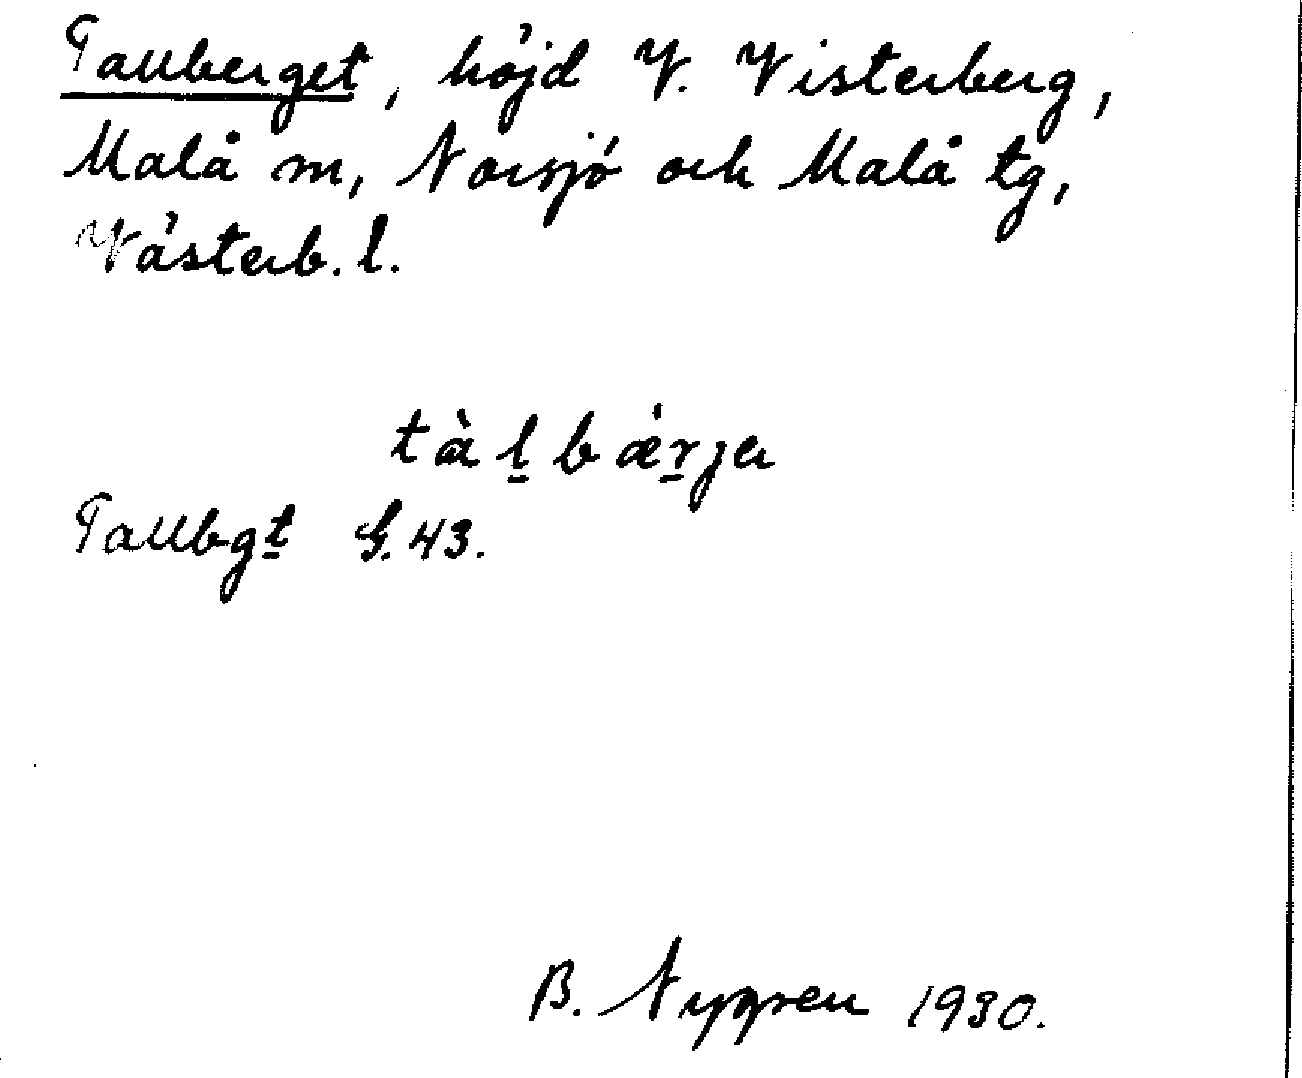 Tallberget, höjd V. Visterberg,
Malå m, Norsjö och Malå tg,
Västerb. l.
tàl̲bǽr̲ja
Tallbgt̲ G. 43.
B. Nygren 1930.